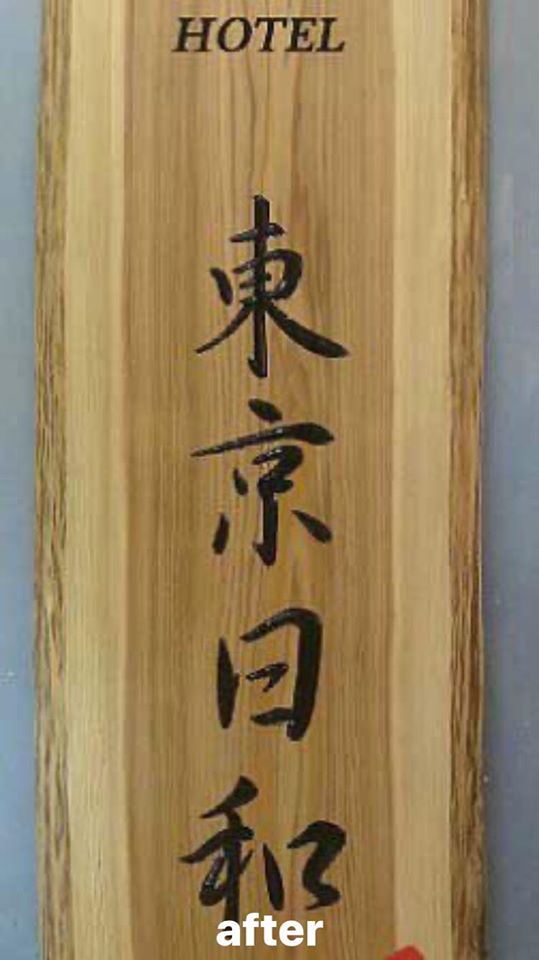 HOTEL
東京日和
after